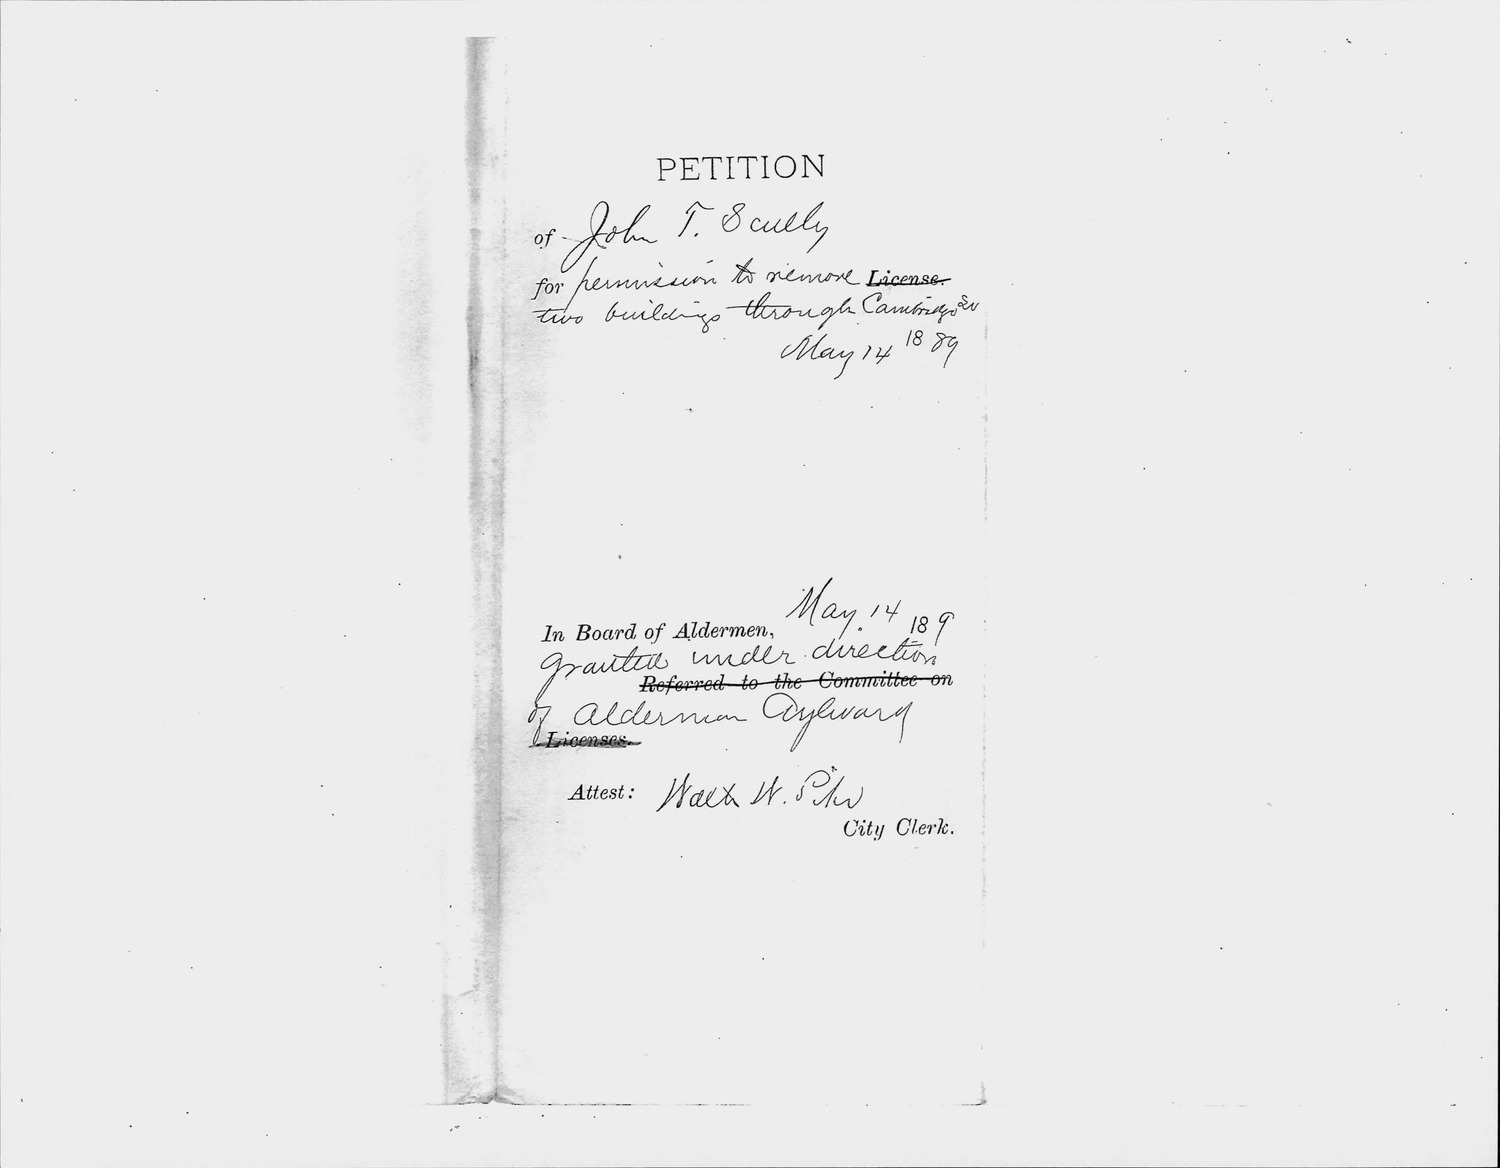 PETITION
of John T. Scully
for permission to remove License.
two buildings through Cambridge St
May 14 1889
May. 14
In Board of Aldermen, 189
granted under direction
Referred to the Committee on
of Alderman Aylward
Licenses.
Attest: Walt W. Pike
City Clerk.